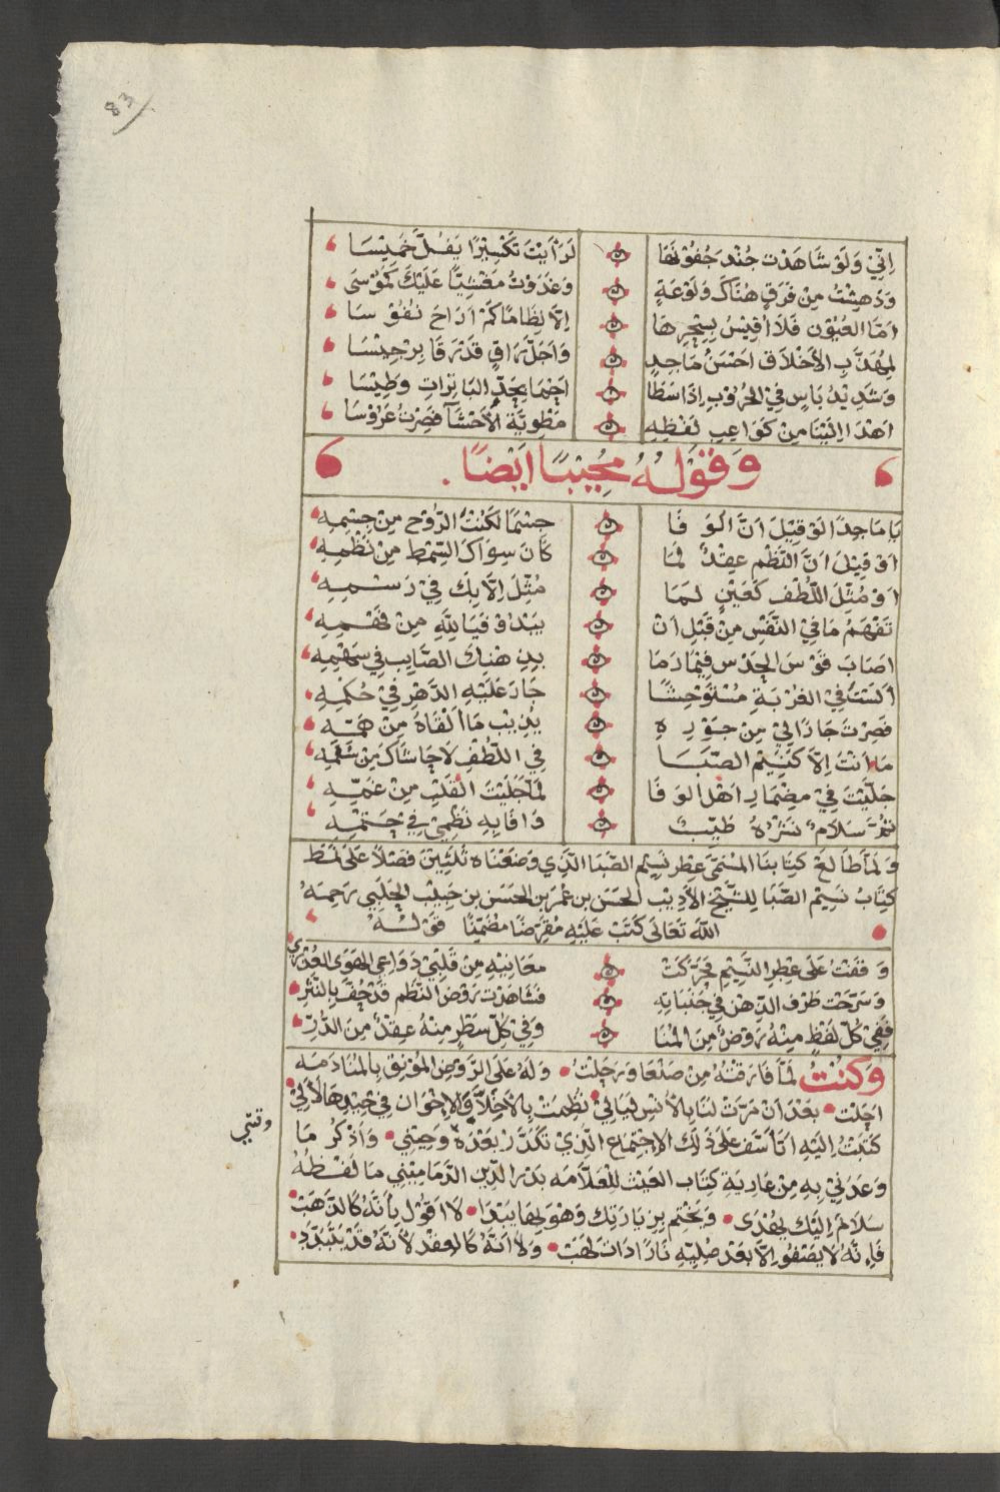 83
اِنِّيْ وَلَوْ شَاهَدْتَ جُنْدَ جُفُوْنِهَا لَرَأَيْتَ تَكْسِيْرًا يَفُلُّ خَمِيْسَا
وَدَهِشْتَ مِنْ فَرَقٍ هُنَاكَ وَلَوْعَةٍ وَغَدَوْتَ مَغْشِيًّا عَلَيْكَ كَمُوْسَى
اَمَّا العُيُوْنُ فَلَا اَقِيْسُ بِسِحْرِهَا اِلَّا نِظَامًا كَمْ اَرَاحَ نُفُوْسَا
لِمُهَذَّبِ الأَخْلَاقِ اَحْسَنُ مَاجِدٍ وَاَجَلُّ رَاقٍ قَدْ رَقَا بِرْجِيْسَا
وَشَدِيْدُ بَاسٍ فِيْ الحُرُوْبِ اِذَا سَطَا اَحْمَا بِحَدِّ البَاتِرَاتِ وَطِيْسَا
اَهْدَا اِلَيْنَا مِنْ كَوَاعِبِ لَفْظِهِ مَطْوِيَّةَ الأَحْشَآ فَصِرْتُ عَرُوْسَا
وَقَوْلُهُ مُجِيْبًا اَيْضًا
يَا مَاجِدًا لَوْ قِيْلَ اَنَّ الوَفَا جِسْمًا لَكُنْتَ الرُّوْحَ مِنْ جِسْمِهِ
اَوْ قِيْلَ اَنَّ النَّظْمَ عِقْدٌ لَمَا كَانَ سِوَاكَ السِّمْطَ مِنْ نَظْمِهِ
اَوْ مُثِّلَ اللُّطْفُ كَعَيْنٍ لَمَا مُثِّلَ اِلَّا بِكَ فِيْ رَسْمِهِ
تَفْهَمُ مَا فِيْ النَّفْسِ مِنْ قَبْلِ اَنْ يَبْدُوْ فَيَا لِلَّهِ مِنْ فَهْمِهِ
اَصَابَ قَوْسَ الحَدْسِ فِيْمَا رَمَا بِذِهْنِكَ الصَّايِبِ فِيْ سَهْمِهِ
آنَسْتَ فِيْ الغُرْبَةِ مُسْتَوْحِشًا جَارَ عَلَيْهِ الدَّهْرُ فِيْ حُكْمِهِ
فَصِرْتَ جَارًا لِيْ مِنْ جَوْرِهِ يُذِيْبُ مَا اَلْقَاهُ مِنْ هَمِّهِ
مَا اَنْتَ اِلَّا كَنَسِيْمِ الصَّبَا فِيْ اللُّطْفِ لَا حَاشَاكَ مِنْ سُقْمِهِ
جَلَّيْتَ فِيْ مِضْمَارِ اَهْلِ الوَفَا لَمَّا جَلَيْتَ القَلْبَ مِنْ غَمِّهِ
ثُمَّ سَلَامٌ نَشْرُهُ طَيِّبٌ وَافَا بِهِ نَظْمِيْ فِيْ خَتْمِهِ
وَلَمَّا طَالَعَ كِتَابَنَا المُسَمَّى عِطْرَ نَسِيْمِ الصَّبَا الَّذِيْ وَضَعْنَاهُ ثَلَثِيْنَ فَصْلًا عَلَى نَمَطِ
كِتَابِ نَسِيْمِ الصَّبَا لِلشَّيْخِ الأَدِيْبِ الحَسَنِ بن عُمَرَ بن الحَسَنِ بن حَبِيْبِ الحَلَبِي رَحِمَهُ
اللّٰهُ تَعَالَى كَتَبَ عَلَيْهِ مُقَرِّضًا مُضَمِّنًا قَوْلُهُ
وَقَفْتُ عَلَى عِطْرِ النَّسِيْمِ فَحَرَّكَتْ مَعَانِيْهِ مِنْ قَلْبِيْ دَوَاعِي الهَوَى العُذْرِيْ
وَسَرَّحْتُ طَرْفَ الذِّهْنِ فِيْ جَنَبَاتِهِ فَشَاهَدْتُ رَوْضَ النَّظْمِ قَدْ حُفَّ بِالنَّثْرِ
فَفِيْ كُلِّ لَفْظٍ مِنْهُ رَوْضٌ مِنَ المُنَا وَفِيْ كُلِّ سَطْرٍ مِنْهُ عِقْدٌ مِنَ الدُّرِّ
وَكُنْتُ لَمَّا فَارَقْتُهُ مِنْ صَنْعَا وَرَحَلْتُ وَلَهُ عَلَى الرَّوْضِ المُوْنِقِ بِالمُنَادَمَه
اَحَلْتُ بَعْدَ اَنْ مَرَّتْ لَنَا بِالأُنْسِ لَيَالِيْ نُظِمَتْ بِالأَخِلَّآ وَالإِخْوَانِ فِيْ جِيْدِهَا لَآلِيْ
كَتَبْتُ اِلَيْهِ اَتَأَسَّفُ عَلَى ذَلِكَ الاِجْتِمَاعِ الَّذِيْ تَكَدَّرَ بَعْدَهُ وَحِيْنِيْ وَاَذْكُرُ مَا
وَعَدَنِيْ بِهِ مِنْ عَارِيَةِ كِتَابِ الغَيْثِ لِلْعَلَّامَه بَدْرِ الدِّيْنِ الدَّمَامِيْنِي مَا لَفْظُهُ
سَلَامٌ اِلَيْكَ يُهْدَى وَيُخْتَمُ بِزِيَارَتِكَ وَهْوَ بِهَا يُبْدَا لَا اَقُوْلُ بِأَنَّهُ كَالذَّهَبْ
فَإِنَّهُ لَا يَصْفُوْ اِلَّا بَعْدَ صُلِيِّهِ نَارًا ذَاتَ لَهَبْ وَلَا اَنَّهُ كَالعِقْدِ لِأَنَّهُ قَدْ يَتَبَدَّدُ